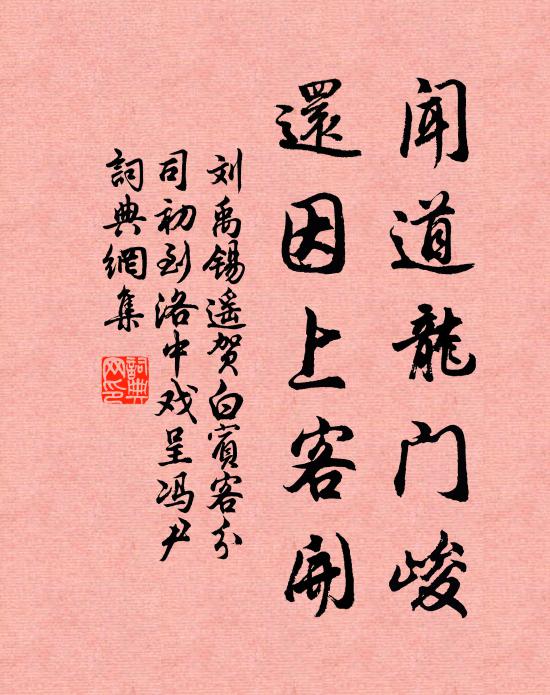 闻道龍门峻
還因上客开
刘禹锡遥贺白賓客分
司初到洛中戏呈冯尹
詞典網集
詞典网印